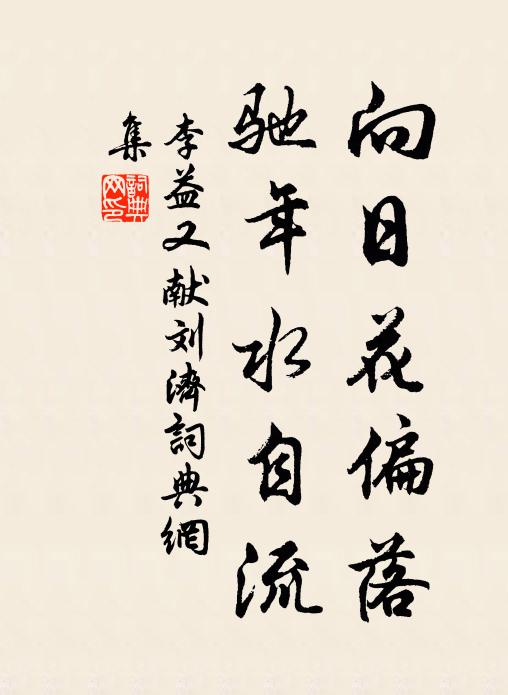 向日花偏落
驰年水自流
李益又献刘濟詞典網
集
詞典
网印